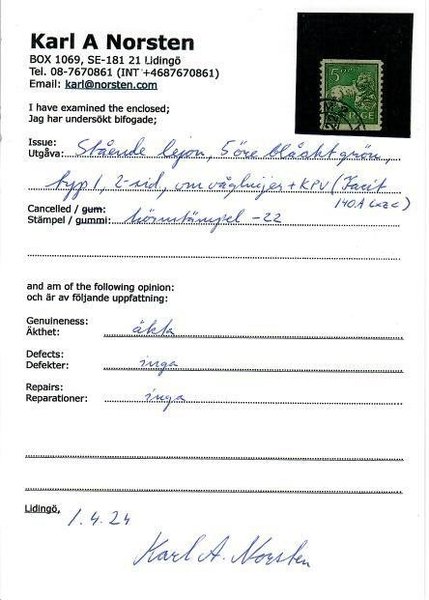 Karl A Norsten
BOX 1069, SE-181 21 Lidingö
Tel. 08-7670861 (INT +4687670861)
Email: karl@norsten.com
5 ÖRE
SVERIGE
I have examined the enclosed;
Jag har undersökt bifogade;
Issue:
Utgåva: Stående lejon, 5 öre blåakt grön,
typ 1, 2-sid, vm våglinjer + KPV (Facit
140A cxz c)
Cancelled / gum:
Stämpel / gummi: hörnstämpel -22
and am of the following opinion:
och är av följande uppfattning:
Genuineness:
Äkthet: äkta
Defects:
Defekter: inga
Repairs:
Reparationer: inga
Lidingö, 1.4.24
Karl A. Norsten